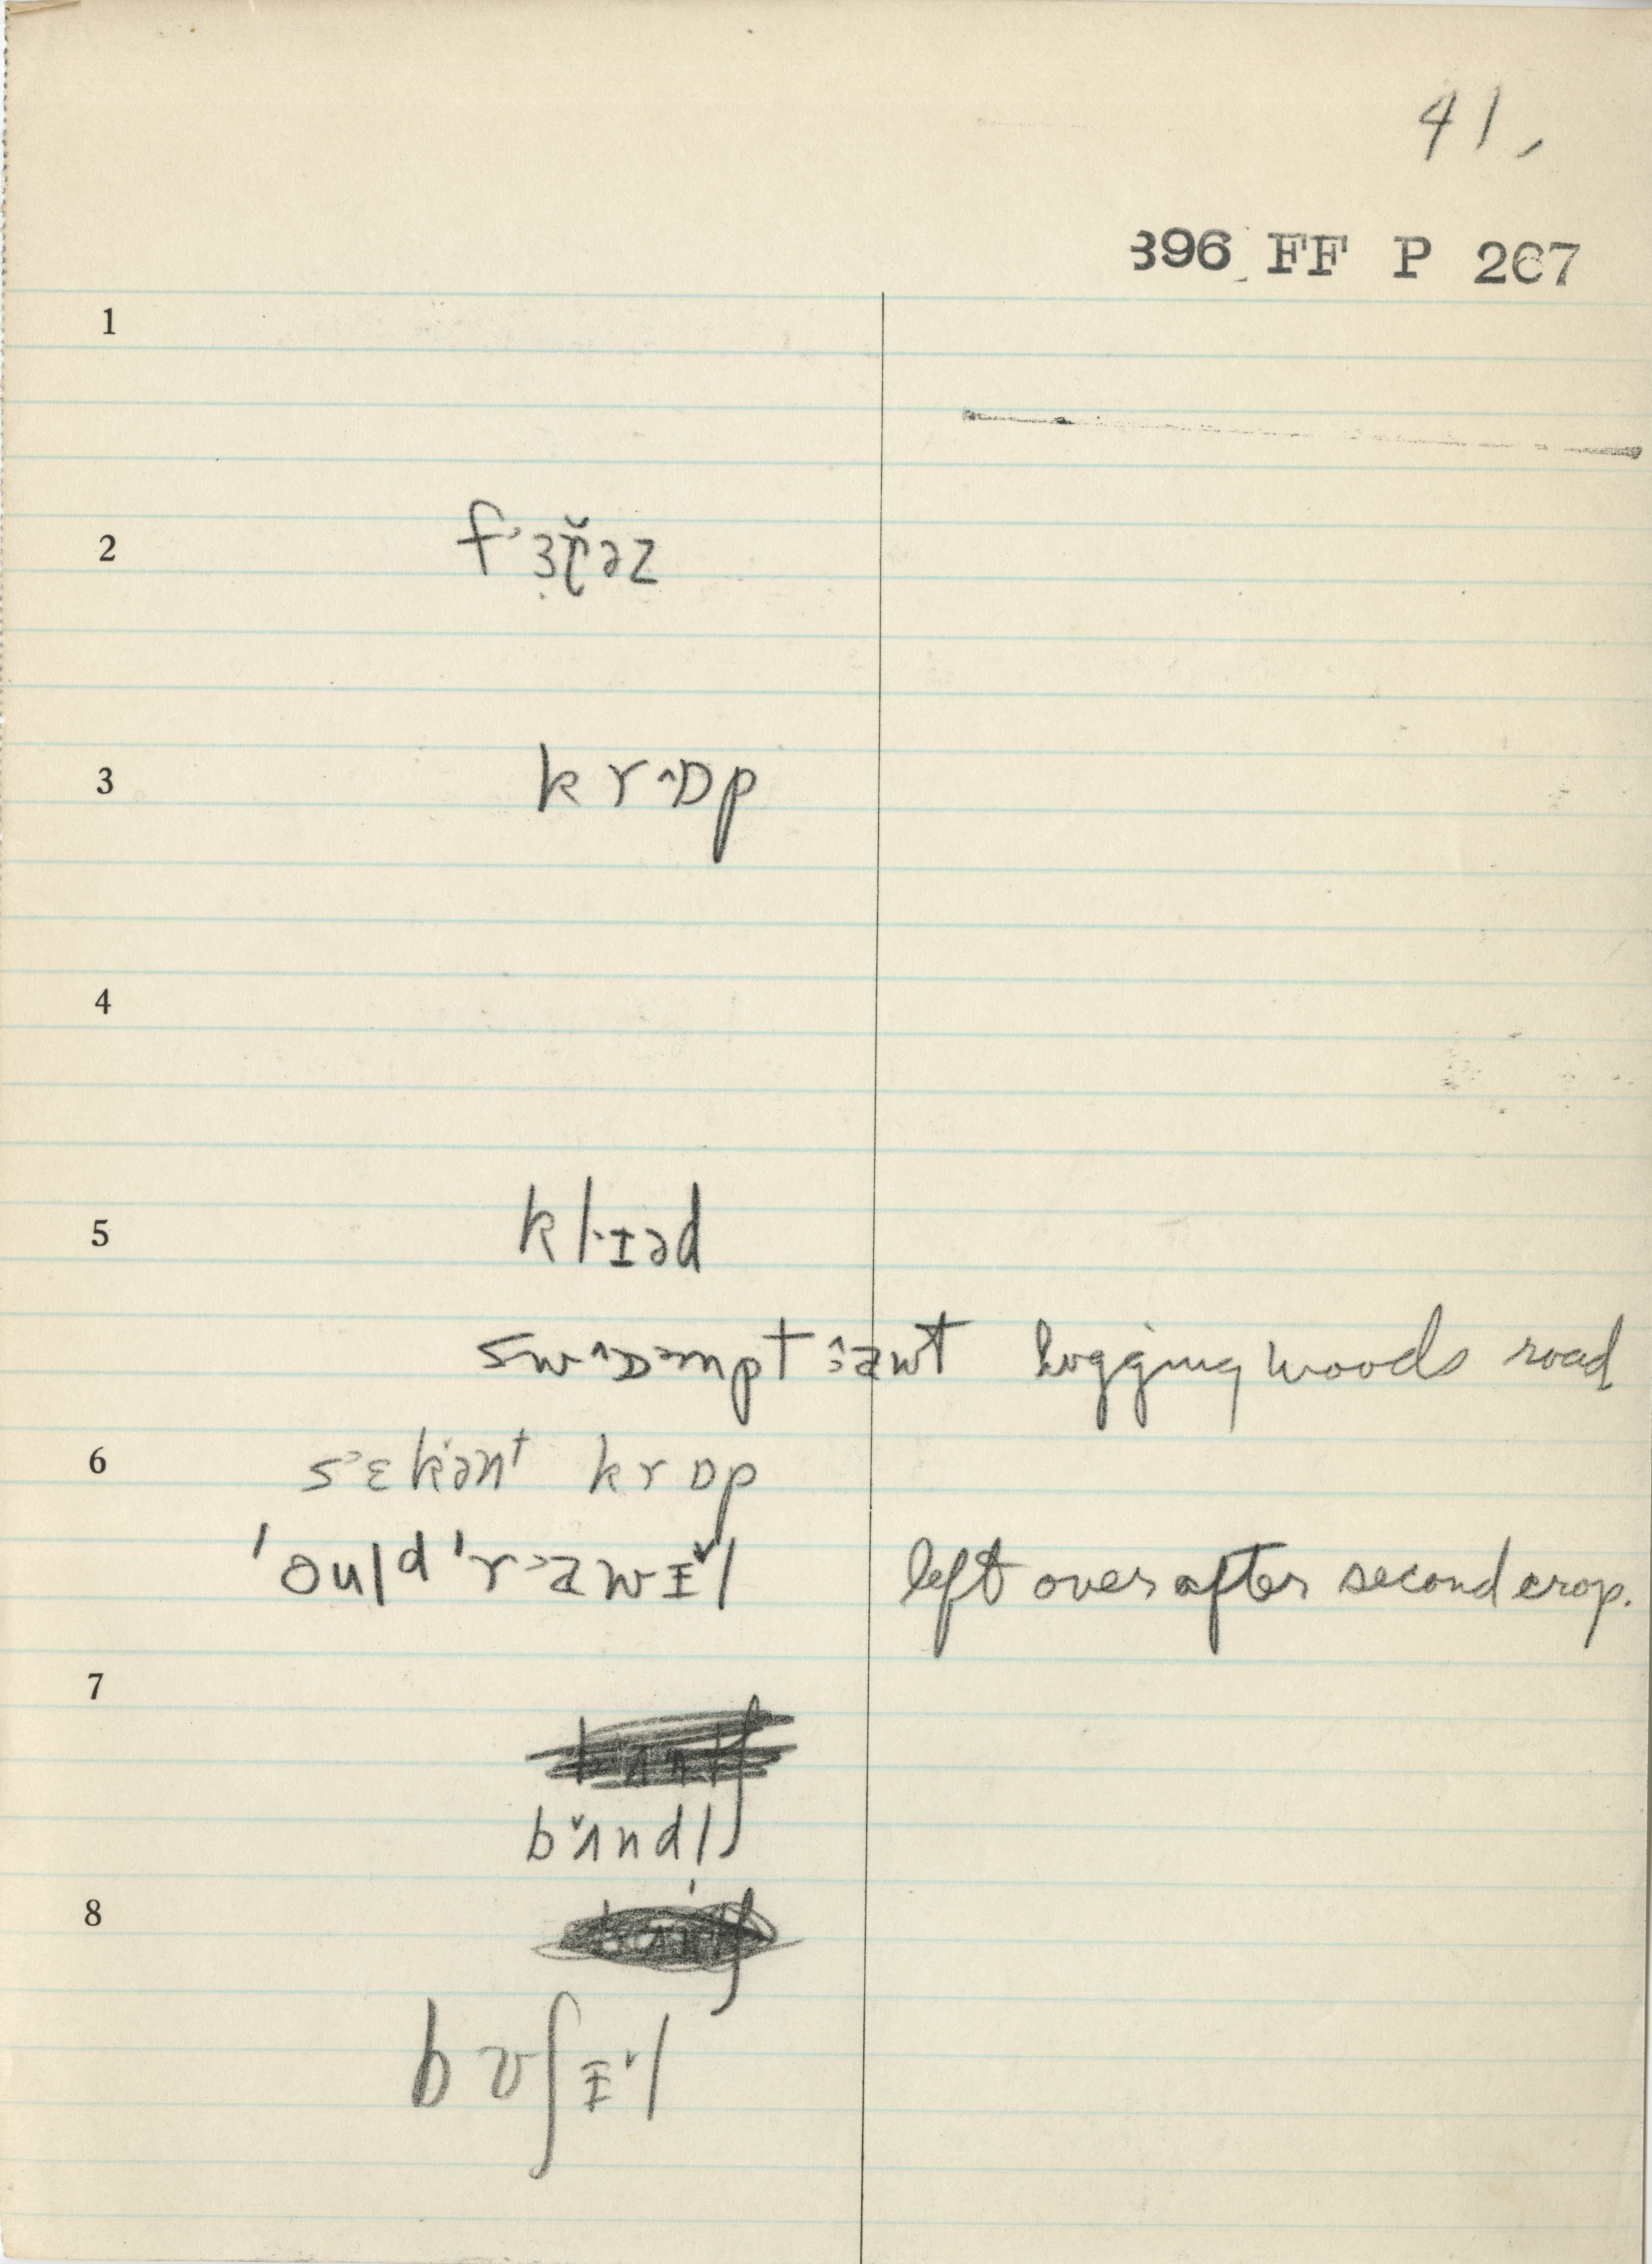 41.
396 FF P 267
1
2 f˒ɜɽ̆əz
3 k r˄ɒp
4
5 kl·ɪəd
sw˄ɒmpt ˄awt logging woods road
6 s˒ɛkənt krɒp
ˈouldˈr˃awɪ̵̌l left over after second crop.
7
bˇʌndlʃ
8
bʊʃɪ̵̌l